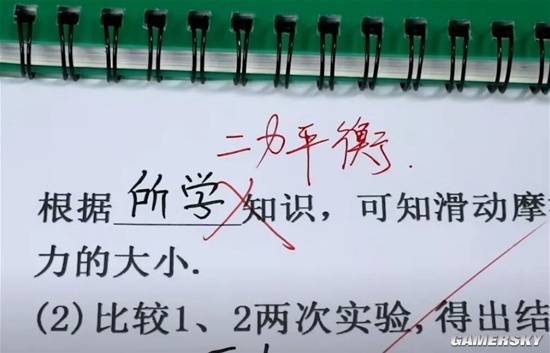 二力平衡.
根据所学知识，可知滑动摩
力的大小.
(2)比较1、2两次实验,得出结
GAMERSKY